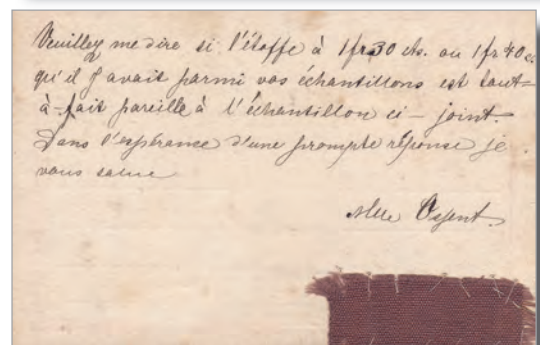 Veuillez me dire si l'étoffe à 1fr30 cts. ou 1fr40 c.
qu'il y avait parmi vos échantillons est tout-
à-fait pareille à l'échantillon ci-joint.
Dans l'espérance d'une prompte réponse je
vous salue
Mlle